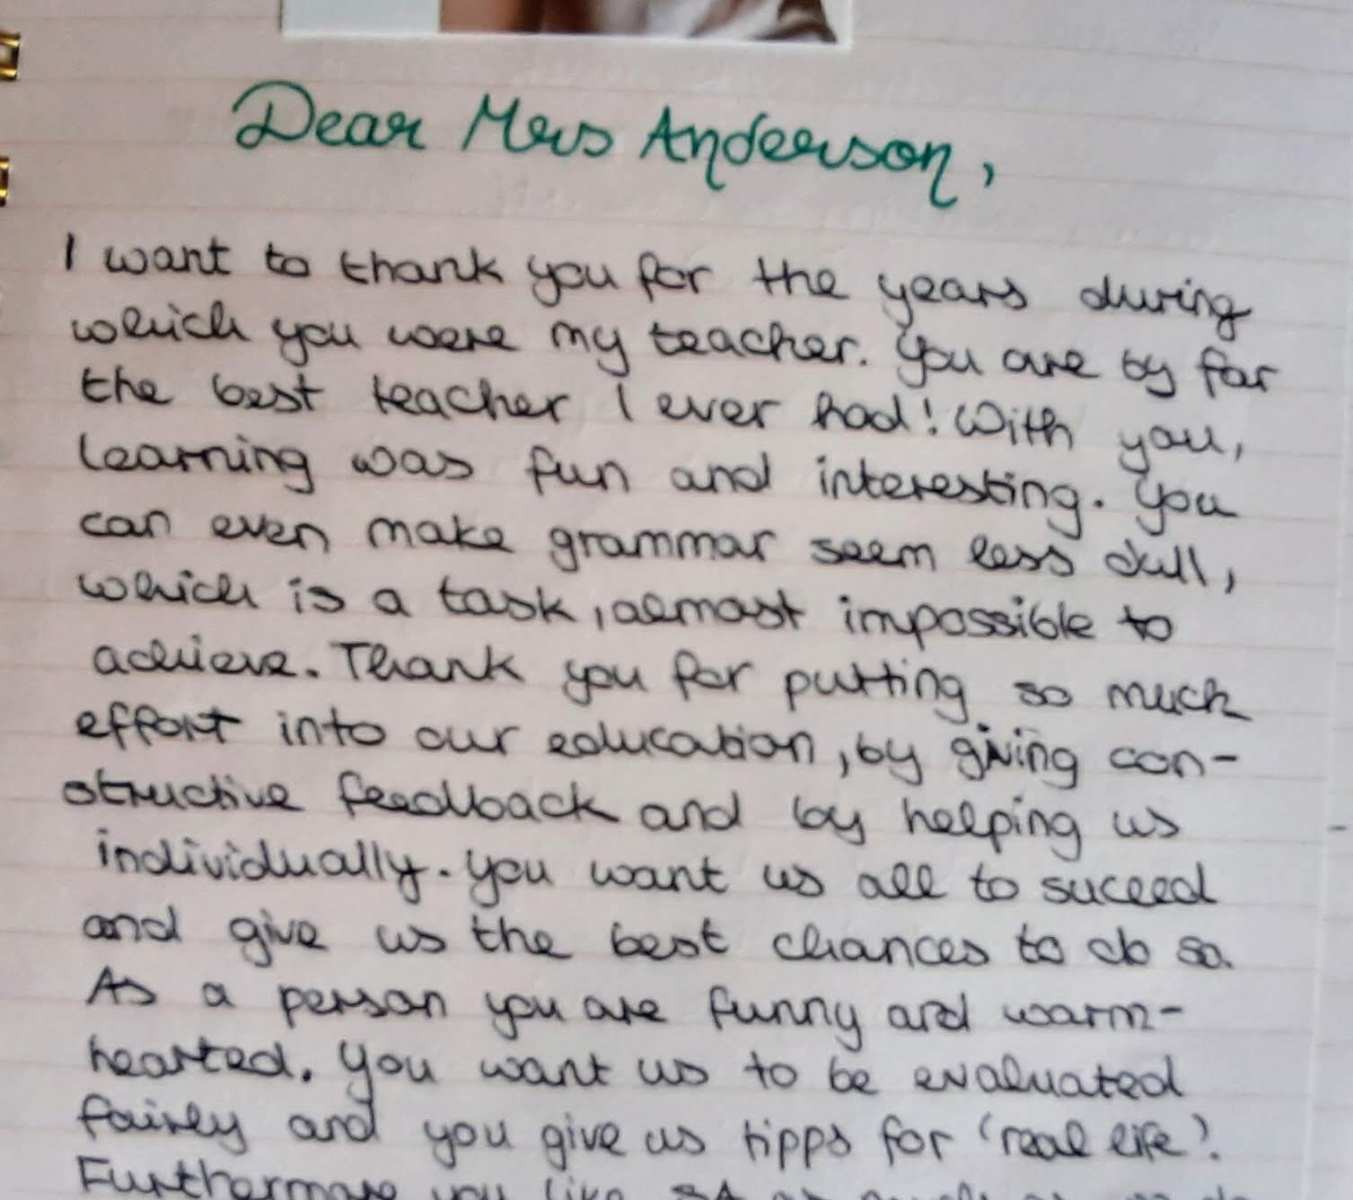 Dear Mrs Anderson,
I want to thank you for the years during
which you were my teacher. You are by far
the best teacher I ever had! With you,
learning was fun and interesting. You
can even make grammar seem less dull,
which is a task, almost impossible to
achieve. Thank you for putting so much
effort into our education, by giving con-
structive feedback and by helping us
individually. You want us all to suceed
and give us the best chances to do so.
As a person you are funny and warm-
hearted. You want us to be evaluated
fairly and you give us tipps for 'real life'.
Furthermore you like